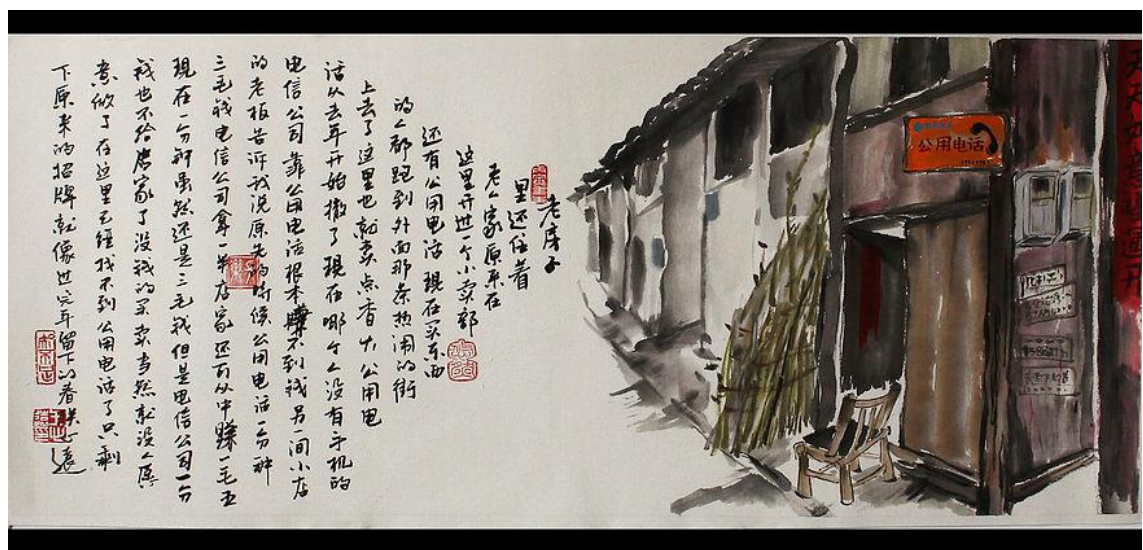 老房子
里还住着
老人家原来在
这里开过一个小卖部
还有公用电话 现在买东西
的人都跑到外面那条热闹的街
上去了 这里也就卖点香火 公用电
话从去年开始撤了 现在哪个人没有手机的
电信公司靠公用电话根本赚不到钱 另间小店
的老板告诉我说 原先的时候公用电话一分钟
三毛钱 电信公司拿一半 店家还可从中赚一毛五
现在一分钟虽然还是三毛钱 但是电信公司一分
钱也不给店家了 没钱的买卖当然就没人愿
意做了 在这里已经找不到公用电话了 只剩
下原来的招牌就像过完年留下的春联
公用电话